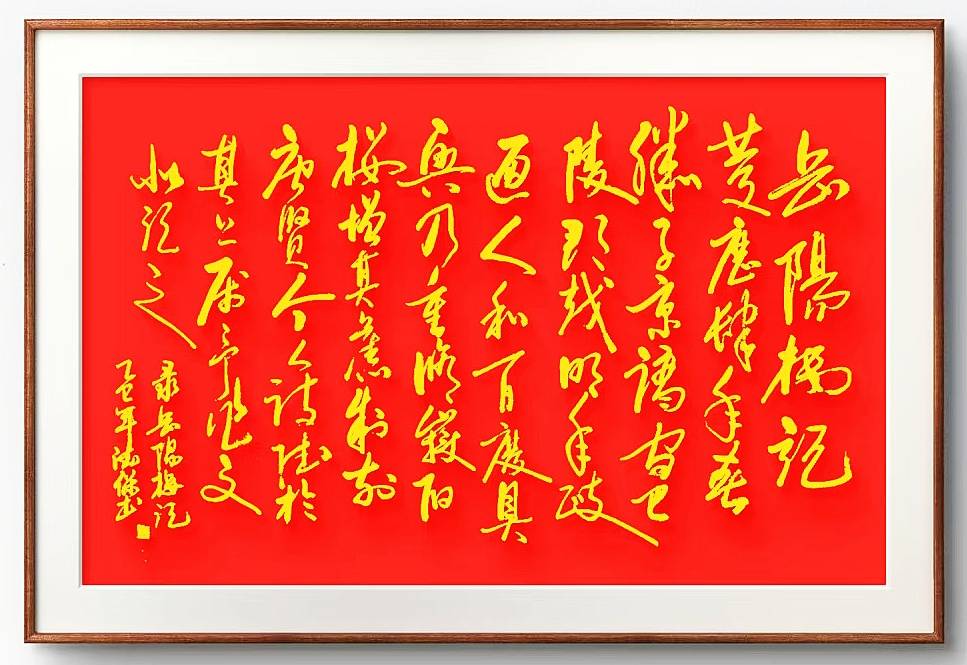 岳陽樓記
慶歷肆年春
滕子京謫守巴
陵郡越明年政
通人和百廢具
興乃重脩嶽陽
樓增其舊制刻
唐賢今人詩賦於
其上屬予作文
以記之
录岳陽樓記
乙巳年